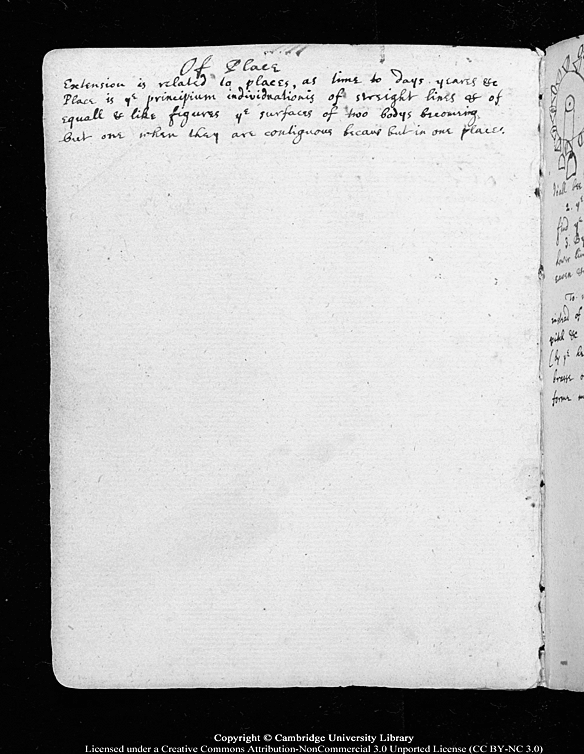 Of Place
Extension is related to places, as time to days yeares &c
Place is ye principium individuationis of streight lines & of
equall & like figures ye surfaces of two bodys becoming
but one when they are contiguous becaus but in one place.
2. ye
find ye
3. By
To
instead of
(by ye
forme
Copyright © Cambridge University Library
Licensed under a Creative Commons Attribution-NonCommercial 3.0 Unported License (CC BY-NC 3.0)